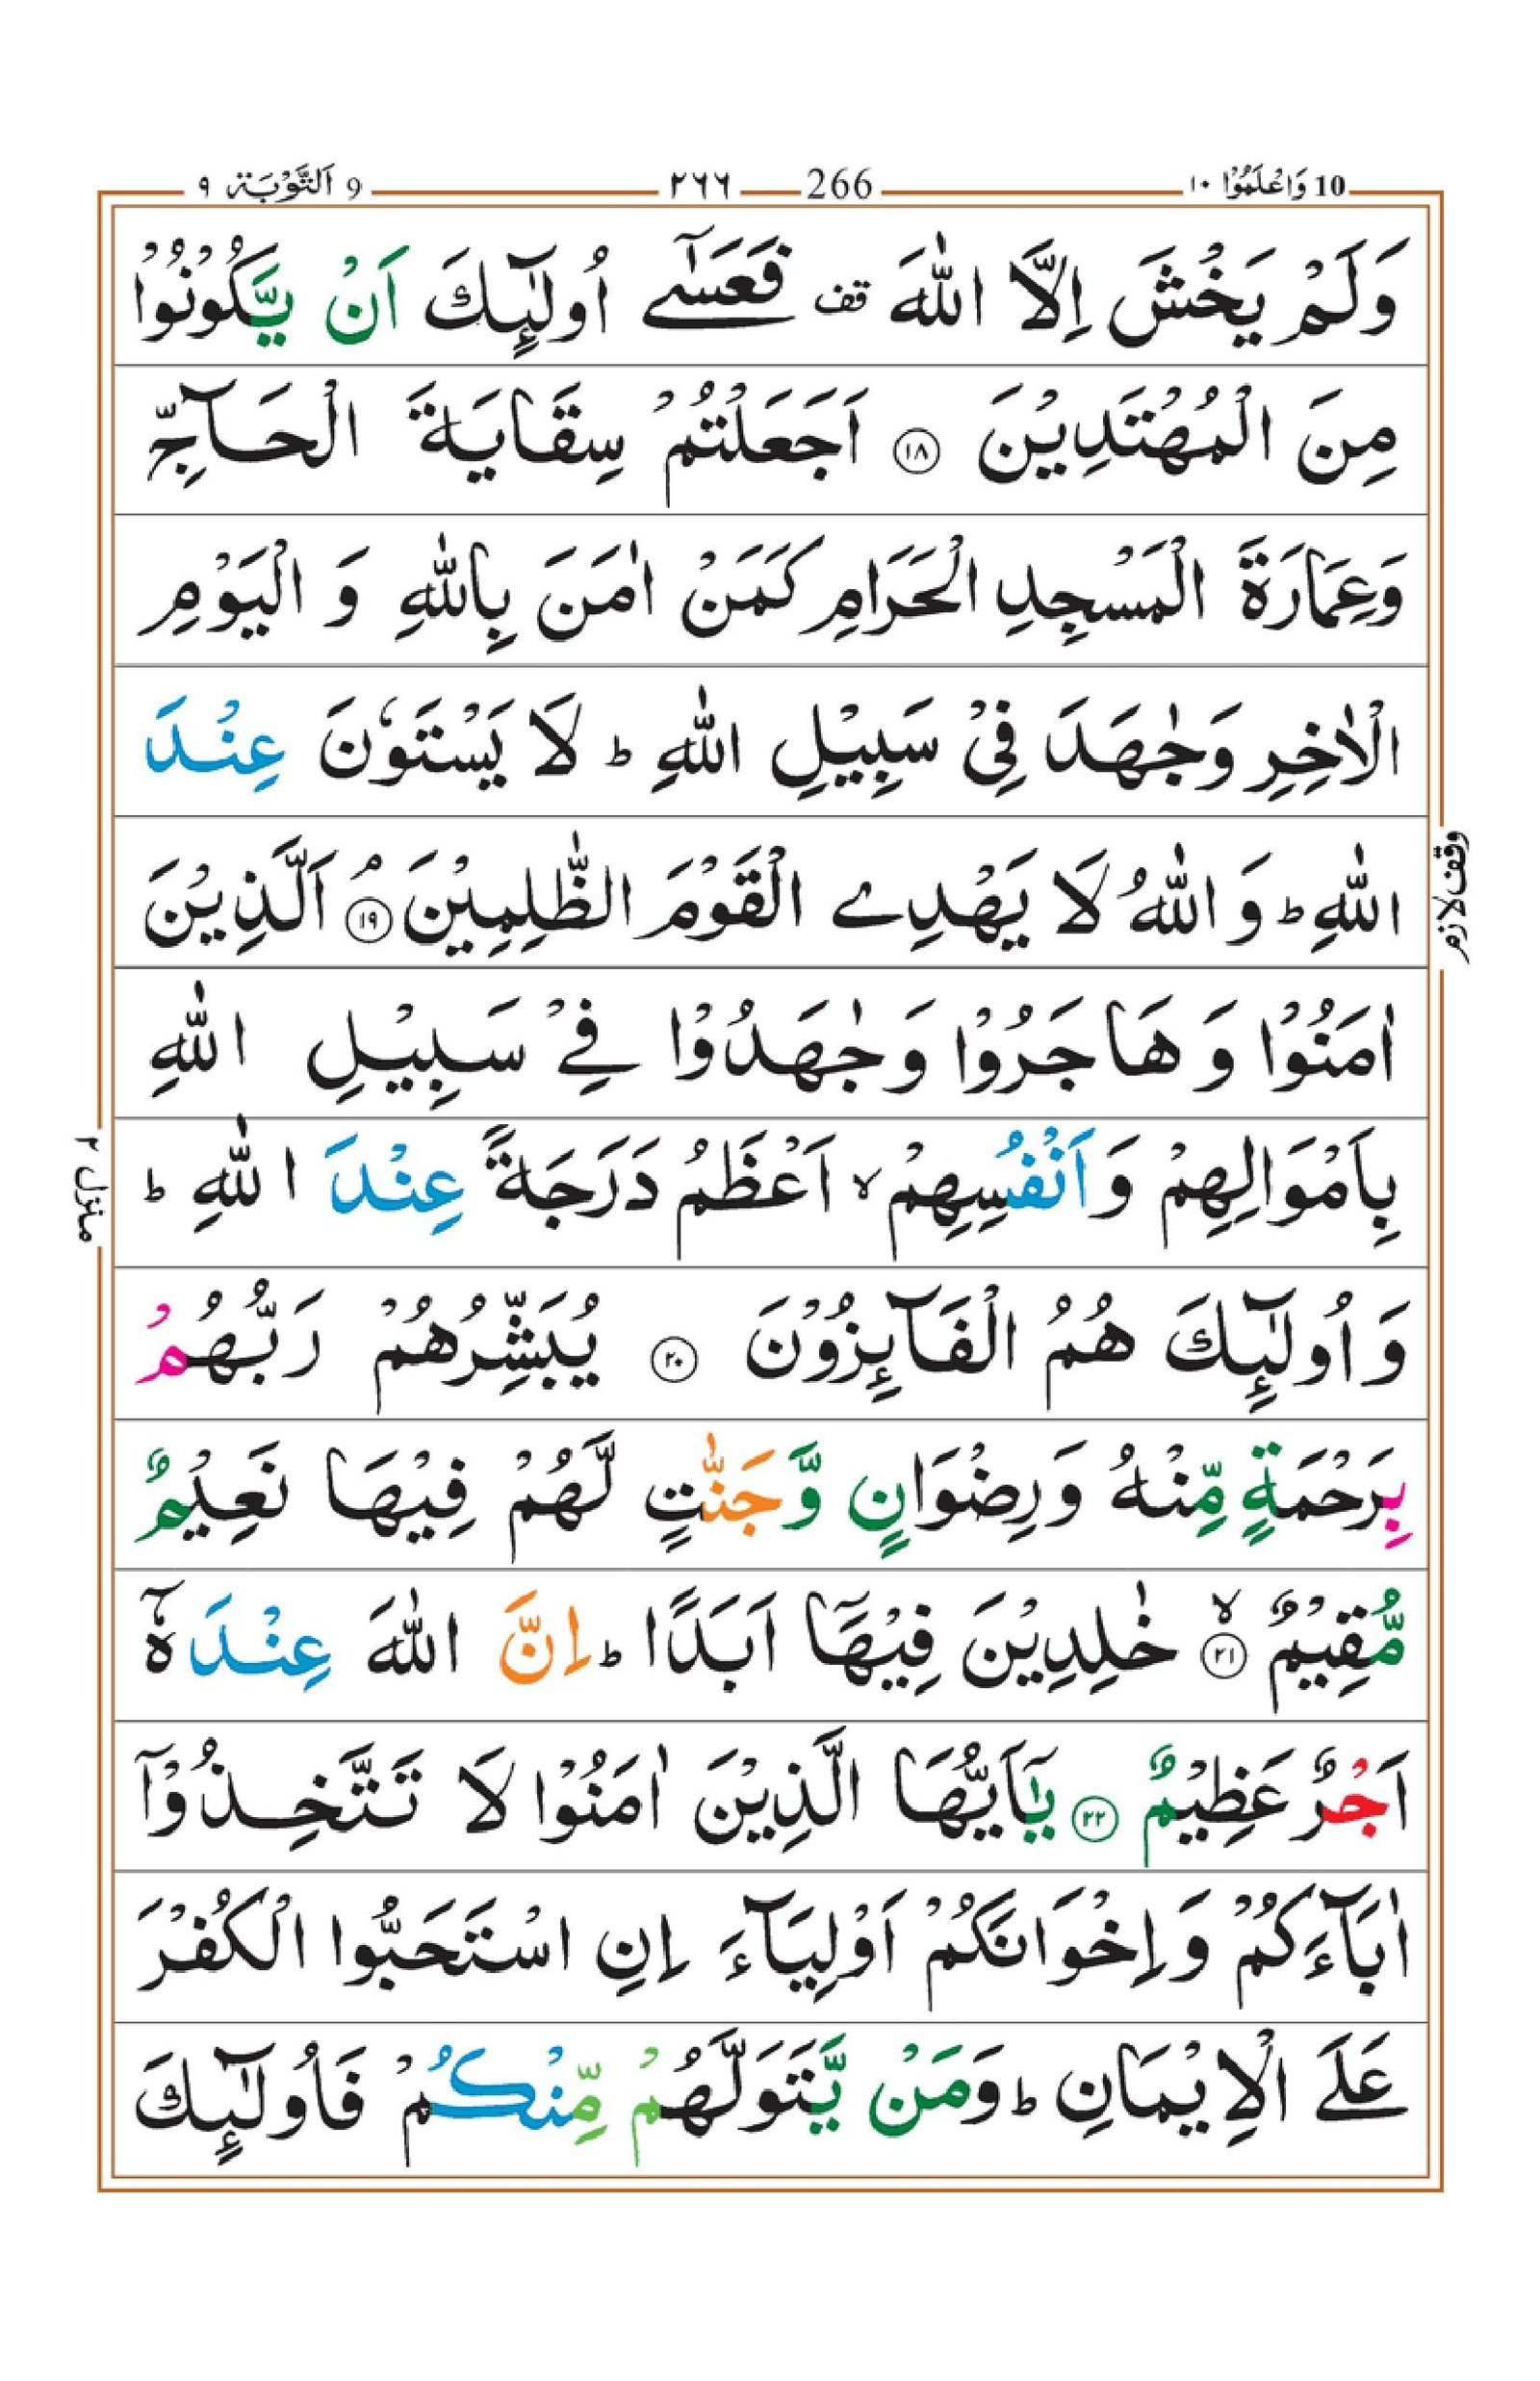 10 وَاعْلَمُوْا ١٠
266 ٢٦٦
9 اَلتَّوْبَة ٩
وَلَمْ يَخْشَ اِلَّا اللّٰهَ قف فَعَسٰٓے اُولٰٓئِكَ اَنْ يَّكُوْنُوْا
مِنَ الْمُهْتَدِيْنَ ١٨ اَجَعَلْتُمْ سِقَايَةَ الْحَآجِّ
وَعِمَارَةَ الْمَسْجِدِ الْحَرَامِ كَمَنْ اٰمَنَ بِاللّٰهِ وَ الْيَوْمِ
الْاٰخِرِ وَجٰهَدَ فِيْ سَبِيْلِ اللّٰهِ ط لَا يَسْتَوٗنَ عِنْدَ
اللّٰهِ ط وَ اللّٰهُ لَا يَهْدِے الْقَوْمَ الظّٰلِمِيْنَ ۘ ١٩ اَلَّذِيْنَ
وقف لازم
اٰمَنُوْا وَ هَاجَرُوْا وَ جٰهَدُوْا فِےْ سَبِيْلِ اللّٰهِ
بِاَمْوَالِهِمْ وَاَنْفُسِهِمْ لا اَعْظَمُ دَرَجَةً عِنْدَ اللّٰهِ ط
منزل ٢
وَ اُولٰٓئِكَ هُمُ الْفَآئِزُوْنَ ٢٠ يُبَشِّرُهُمْ رَبُّهُمْ
بِرَحْمَةٍ مِّنْهُ وَرِضْوَانٍ وَّجَنّٰتٍ لَّهُمْ فِيْهَا نَعِيْمٌ
مُّقِيْمٌ لا ٢١ خٰلِدِيْنَ فِيْهَآ اَبَدًا ط اِنَّ اللّٰهَ عِنْدَهٗٓ
اَجْرٌ عَظِيْمٌ ٢٢ يٰٓاَيُّهَا الَّذِيْنَ اٰمَنُوْا لَا تَتَّخِذُوْٓا
اٰبَآءَكُمْ وَاِخْوَانَكُمْ اَوْلِيَآءَ اِنِ اسْتَحَبُّوا الْكُفْرَ
عَلَے الْاِيْمَانِ ط وَمَنْ يَّتَوَلَّهُمْ مِّنْكُمْ فَاُولٰٓئِكَ